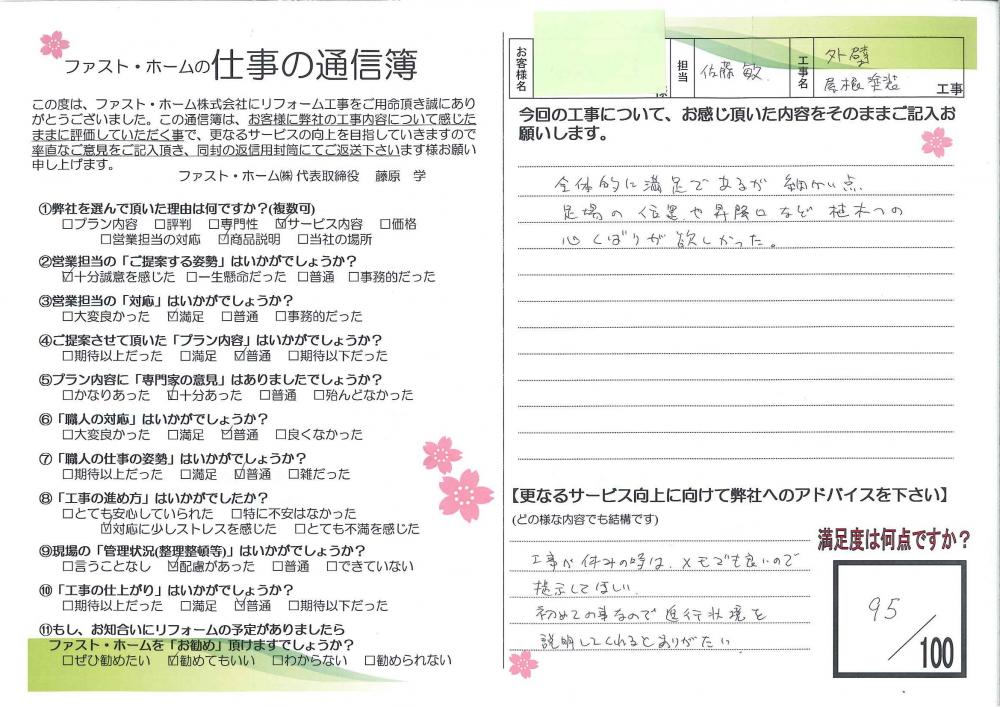 ファスト・ホームの仕事の通信簿
この度は、ファスト・ホーム株式会社にリフォーム工事をご用命頂き誠にあり
がとうございました。この通信簿は、お客様に弊社の工事内容について感じた
ままに評価していただく事で、更なるサービスの向上を目指していきますので
率直なご意見をご記入頂き、同封の返信用封筒にてご返送下さいます様お願い
申し上げます。
ファスト・ホーム㈱ 代表取締役 藤原 学
①弊社を選んで頂いた理由は何ですか?(複数可)
□プラン内容 □評判 □専門性 ☑サービス内容 □価格
□営業担当の対応 ☑商品説明 □当社の場所
②営業担当の「ご提案する姿勢」はいかがでしょうか？
☑十分誠意を感じた □一生懸命だった □普通 □事務的だった
③営業担当の「対応」はいかがでしょうか？
□大変良かった ☑満足 □普通 □事務的だった
④ご提案させて頂いた「プラン内容」はいかがでしょうか？
□期待以上だった □満足 ☑普通 □期待以下だった
⑤プラン内容に「専門家の意見」はありましたでしょうか？
□かなりあった ☑十分あった □普通 □殆んどなかった
⑥「職人の対応」はいかがでしょうか？
□大変良かった □満足 ☑普通 □良くなかった
⑦「職人の仕事の姿勢」はいかがでしょうか？
□期待以上だった □満足 ☑普通 □雑だった
⑧「工事の進め方」はいかがでしたか？
□とても安心していられた □特に不安はなかった
☑対応に少しストレスを感じた □とても不満を感じた
⑨現場の「管理状況(整理整頓等)」はいかがでしょうか？
□言うことなし ☑配慮があった □普通 □できていない
⑩「工事の仕上がり」はいかがでしょうか？
□期待以上だった □満足 ☑普通 □期待以下だった
⑪もし、お知合いにリフォームの予定がありましたら
ファスト・ホームを「お勧め」頂けますでしょうか？
□ぜひ勧めたい ☑勧めてもいい □わからない □勧められない
お客様名 様 担当 佐藤 敏 工事名 外壁
屋根塗装 工事
今回の工事について、お感じ頂いた内容をそのままご記入お
願いします。
全体的に満足であるが 細かい点
足場の位置や昇降口など 植木への
心くばりが欲しかった。
【更なるサービス向上に向けて弊社へのアドバイスを下さい】
(どの様な内容でも結構です)
工事が休みの時は、メモでも良いので
提示してほしい
初めての事なので進行状境を
説明してくれるとありがたい
満足度は何点ですか？
95/100